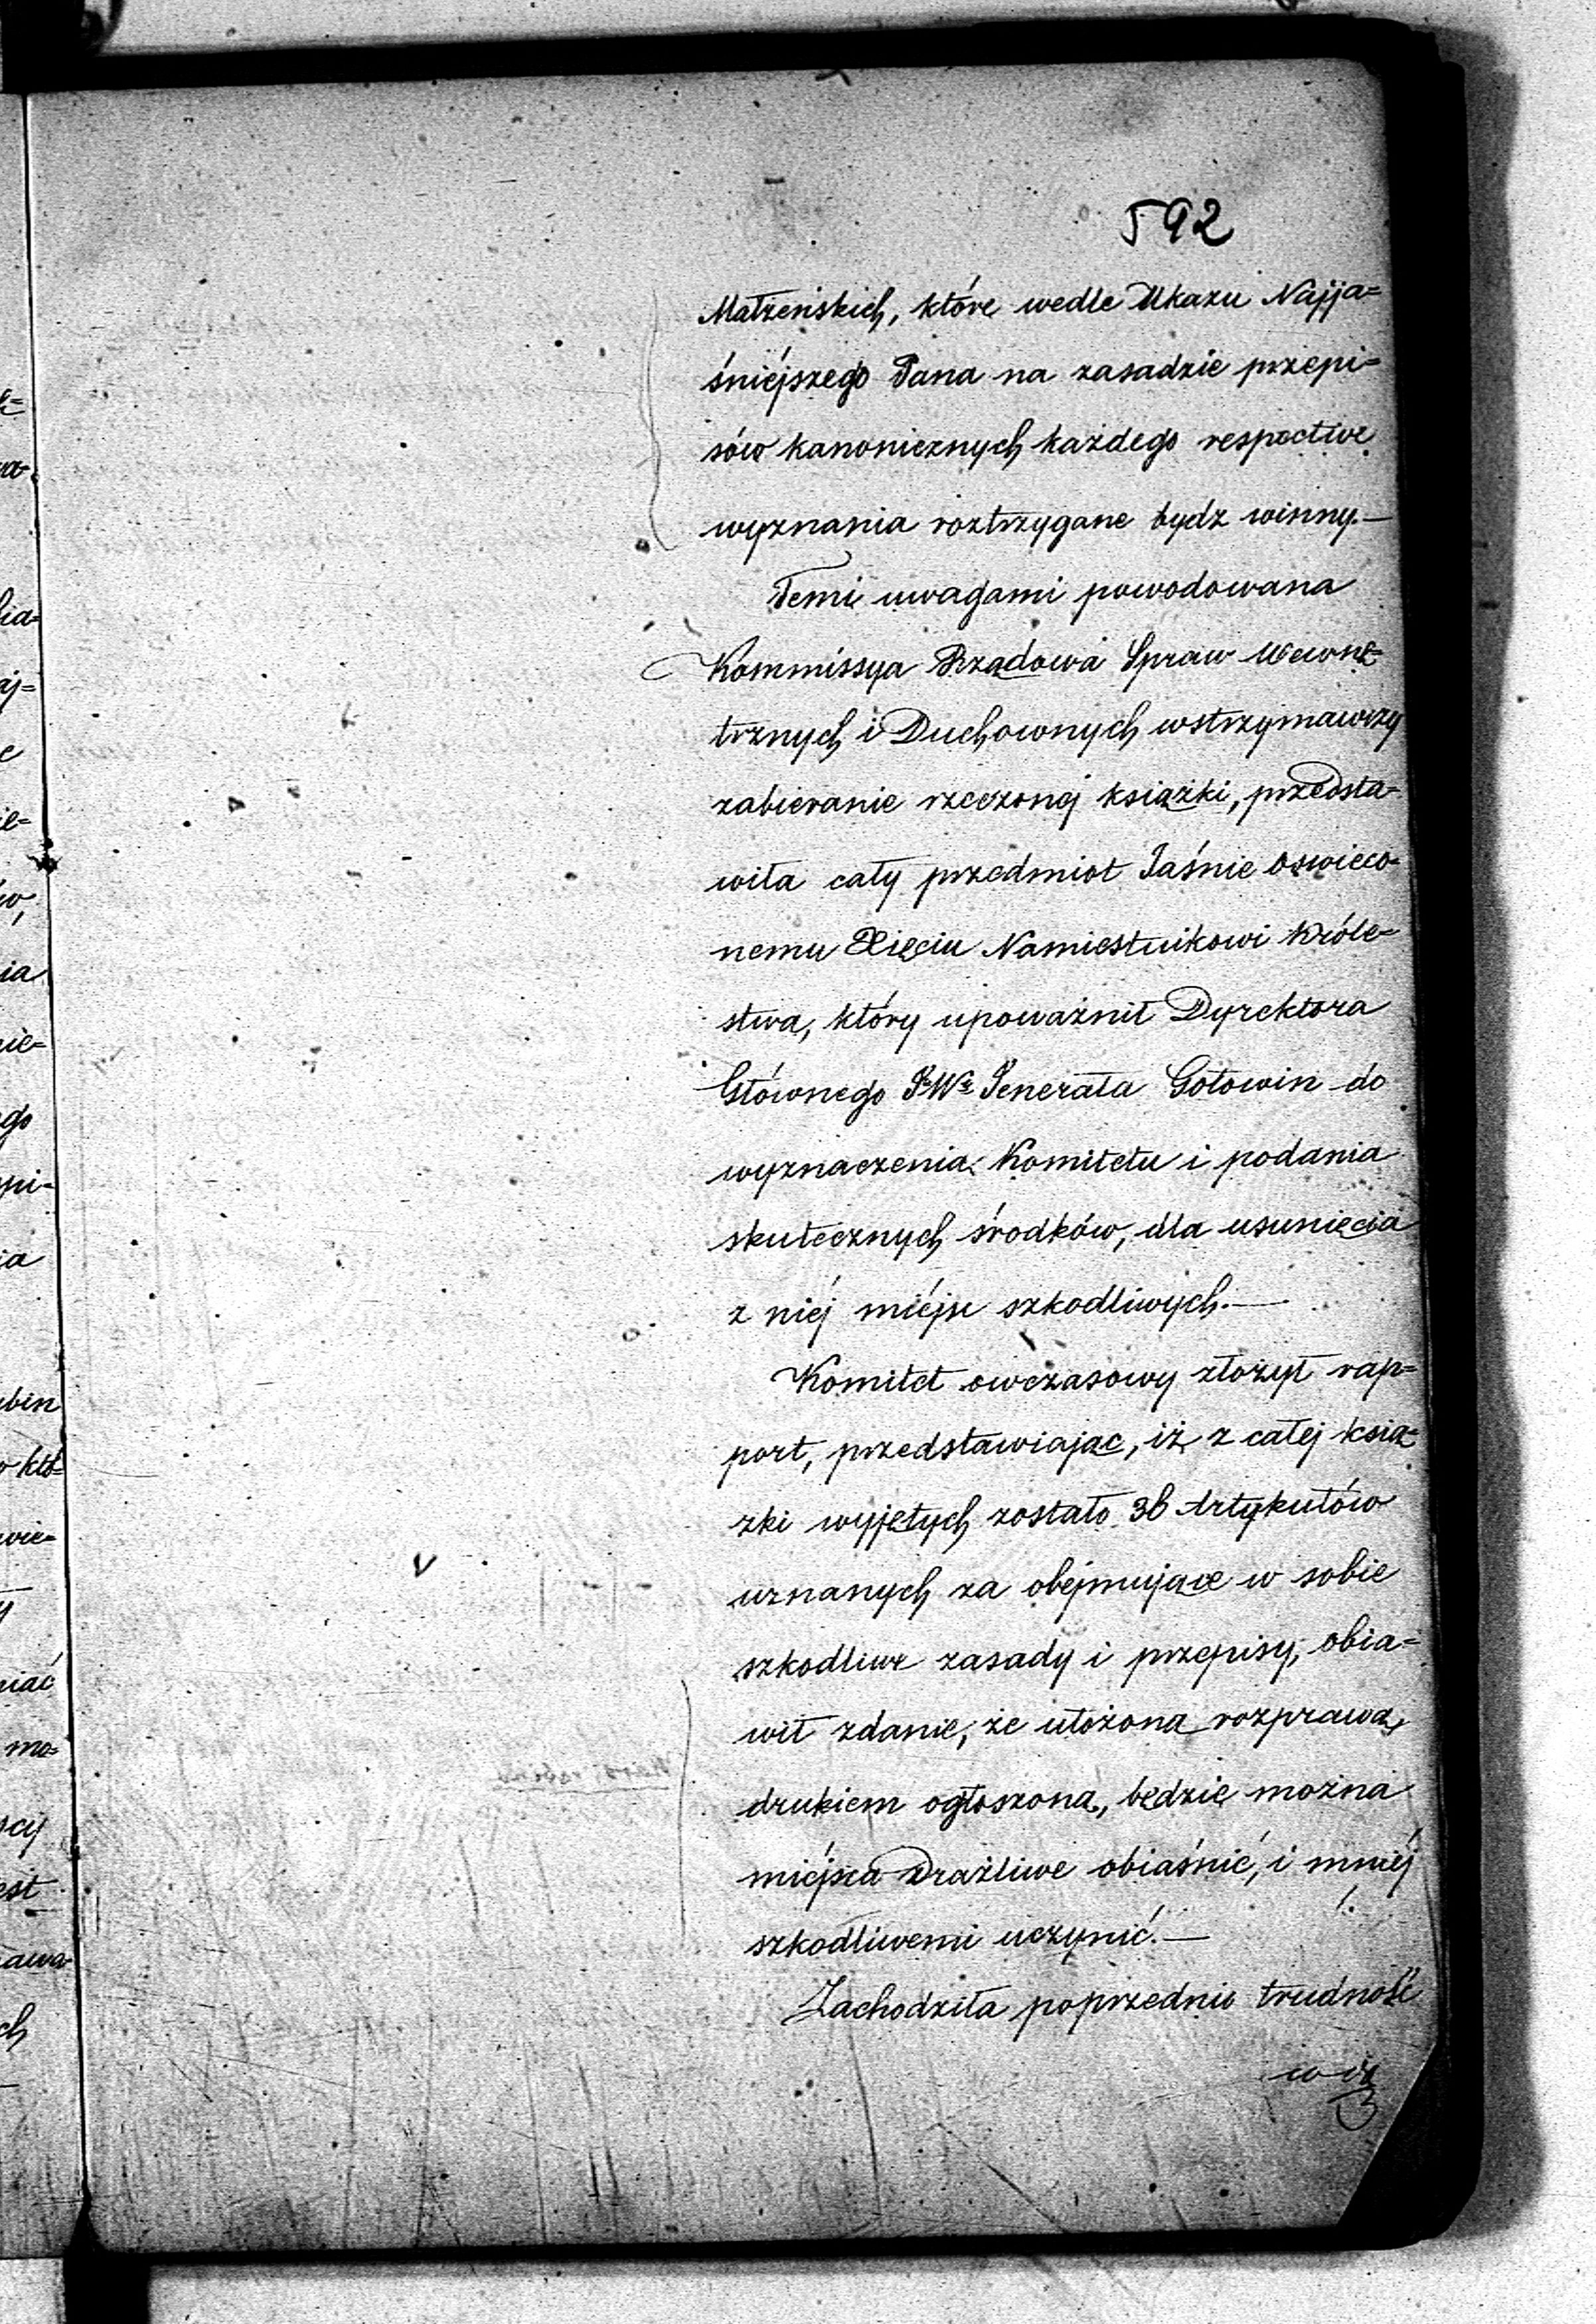 592
Małżeńskich, które wedle Ukazu Najja=
śniéjszego Pana na zasadzie przepi=
sów kanonicznych każdego respective
wyznania roztrzygane bydz winny.—
Temi uwagami powodowana
Kommissya Rządowa Spraw Wewnę=
trznych i Duchownych wstrzymawszy
zabieranie rzeczonej książki, przedsta=
wiła cały przedmiot Jaśnie oswieco=
nemu Xięciu Namiestnikowi Króle=
stwa, który upoważnił Dyrektora
Głównego JWo Jenerała Gołowin do
wyznaczenia Komitetu i podania
skutecznych środków, dla usunięcia
z niéj miéjsc szkodliwych.—
Komitet owczasowy złożył rap=
port, przedstawiając, iż z całej ksią=
żki wyjętych zostało 36 Artykułów
uznanych za obejmujące w sobie
szkodliwe zasady i przepisy, obia=
wił zdanie, że ułożoną rozprawą,
drukiem ogłoszoną, będzie można
miéjsca drażliwe obiaśnić, i mniéj
szkodliwemi uczynić.—
Zachodziła poprzednio trudność